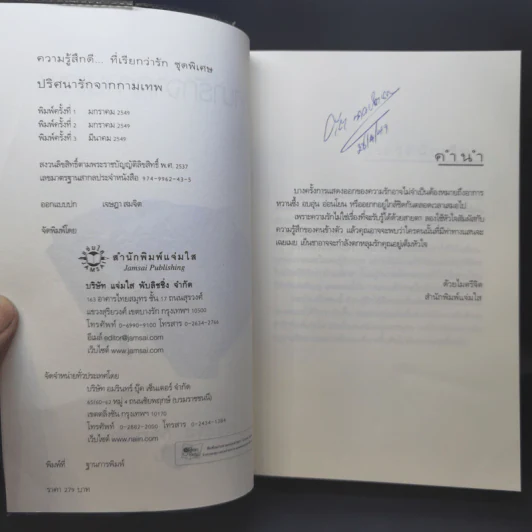 ความรู้สึกดี... ที่เรียกว่ารัก ชุดพิเศษ
ปริศนารักจากกามเทพ
พิมพ์ครั้งที่ 1 มกราคม 2549
พิมพ์ครั้งที่ 2 มกราคม 2549
พิมพ์ครั้งที่ 3 มีนาคม 2549
สงวนลิขสิทธิ์ตามพระราชบัญญัติลิขสิทธิ์ พ.ศ. 2537
เลขมาตรฐานสากลประจำหนังสือ 974-9962-43-5
ออกแบบปก เจษฎา สมจิต
จัดพิมพ์โดย
สำนักพิมพ์แจ่มใส
Jamsai Publishing
บริษัท แจ่มใส พับลิชชิ่ง จำกัด
143 อาคารไทยสมุทร ชั้น 17 ถนนสุรวงศ์
แขวงสุริยวงศ์ เขตบางรัก กรุงเทพฯ 10500
โทรศัพท์ 0-6940-9100 โทรสาร 0-2634-2744
อีเมล์ editor@jamsai.com
เว็บไซต์ www.jamsai.com
จัดจำหน่ายทั่วประเทศโดย
บริษัท อมรินทร์ บุ๊ค เซ็นเตอร์ จำกัด
65/60-62 หมู่ 4 ถนนชัยพฤกษ์ (บรมราชชนนี)
เขตตลิ่งชัน กรุงเทพฯ 10170
โทรศัพท์ 0-2882-2000 โทรสาร
เว็บไซต์ www.naiin.com
พิมพ์ที่ ฐานการพิมพ์
ราคา 279 บาท
คำนำ
บางครั้งการแสดงออกของความรักอาจไม่จำเป็นต้องหมายถึงอาการ
หวานซึ้ง อบอุ่น อ่อนโยน หรืออยากอยู่ใกล้ชิดกันตลอดเวลาเสมอไป
เพราะความรักไม่ใช่เรื่องที่จะรับรู้ได้ด้วยสายตา ลองใช้หัวใจสัมผัสกับ
ความรู้สึกของคนข้างตัว แล้วคุณอาจจะพบว่าใครคนนั้นที่มีท่าทางแสนจะ
เฉยเมย เย็นชาอาจจะกำลังตกหลุมรักคุณอยู่เต็มหัวใจ
ด้วยไมตรีจิต
สำนักพิมพ์แจ่มใส